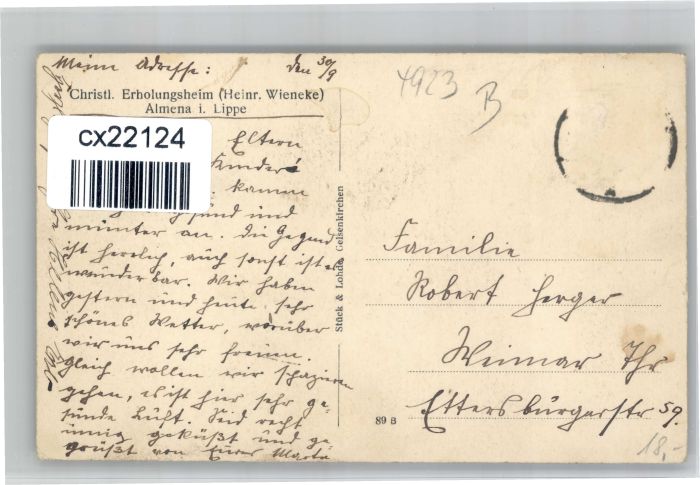 Meine Adresse: den 30/9
Christl. Erholungsheim (Heinr. Wieneke)
Almena i. Lippe
cx22124
Eltern
Kinder
kamen
gesund und
munter an. Die Gegend
ist herrlich, auch sonst ist es
wunderbar. Wir haben
gestern und heute sehr
schönes Wetter, worüber
wir uns sehr freuen.
gleich wollen wir spazieren
gehen, es ist hier sehr ge-
sunde Luft. Seid recht
innig geküßt und ge-
grüßt von Eurer Marta
Stück & Lohde, Gelsenkirchen
4923
B
Familie
Robert Herger
Weimar Thr
Ettersburgerstr 59.
89 B
18,-